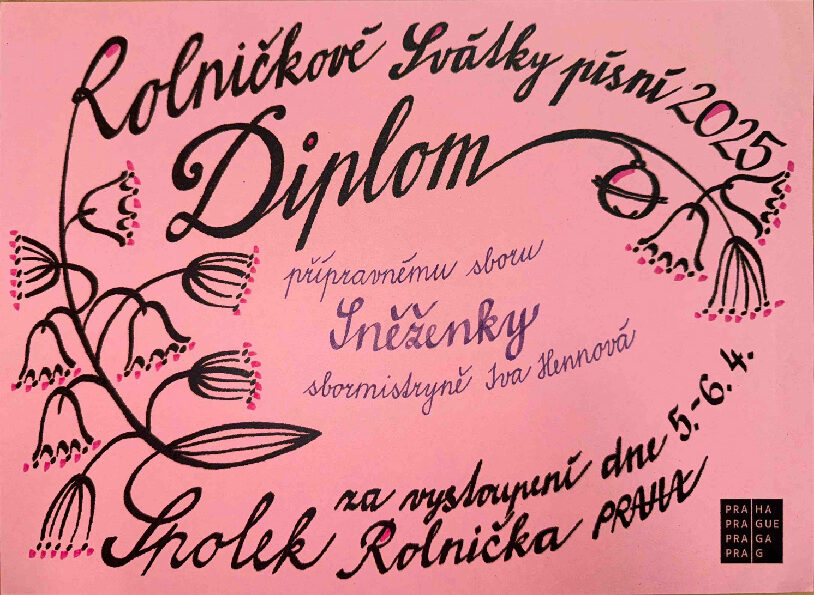 Rolničkové Svátky písní 2025
Diplom
přípravnému sboru
Sněženky
sbormistryně Iva Hennová
za vystoupení dne 5.-6. 4.
Spolek Rolnička PRAHA
PRA HA
PRA GUE
PRA GA
PRA G